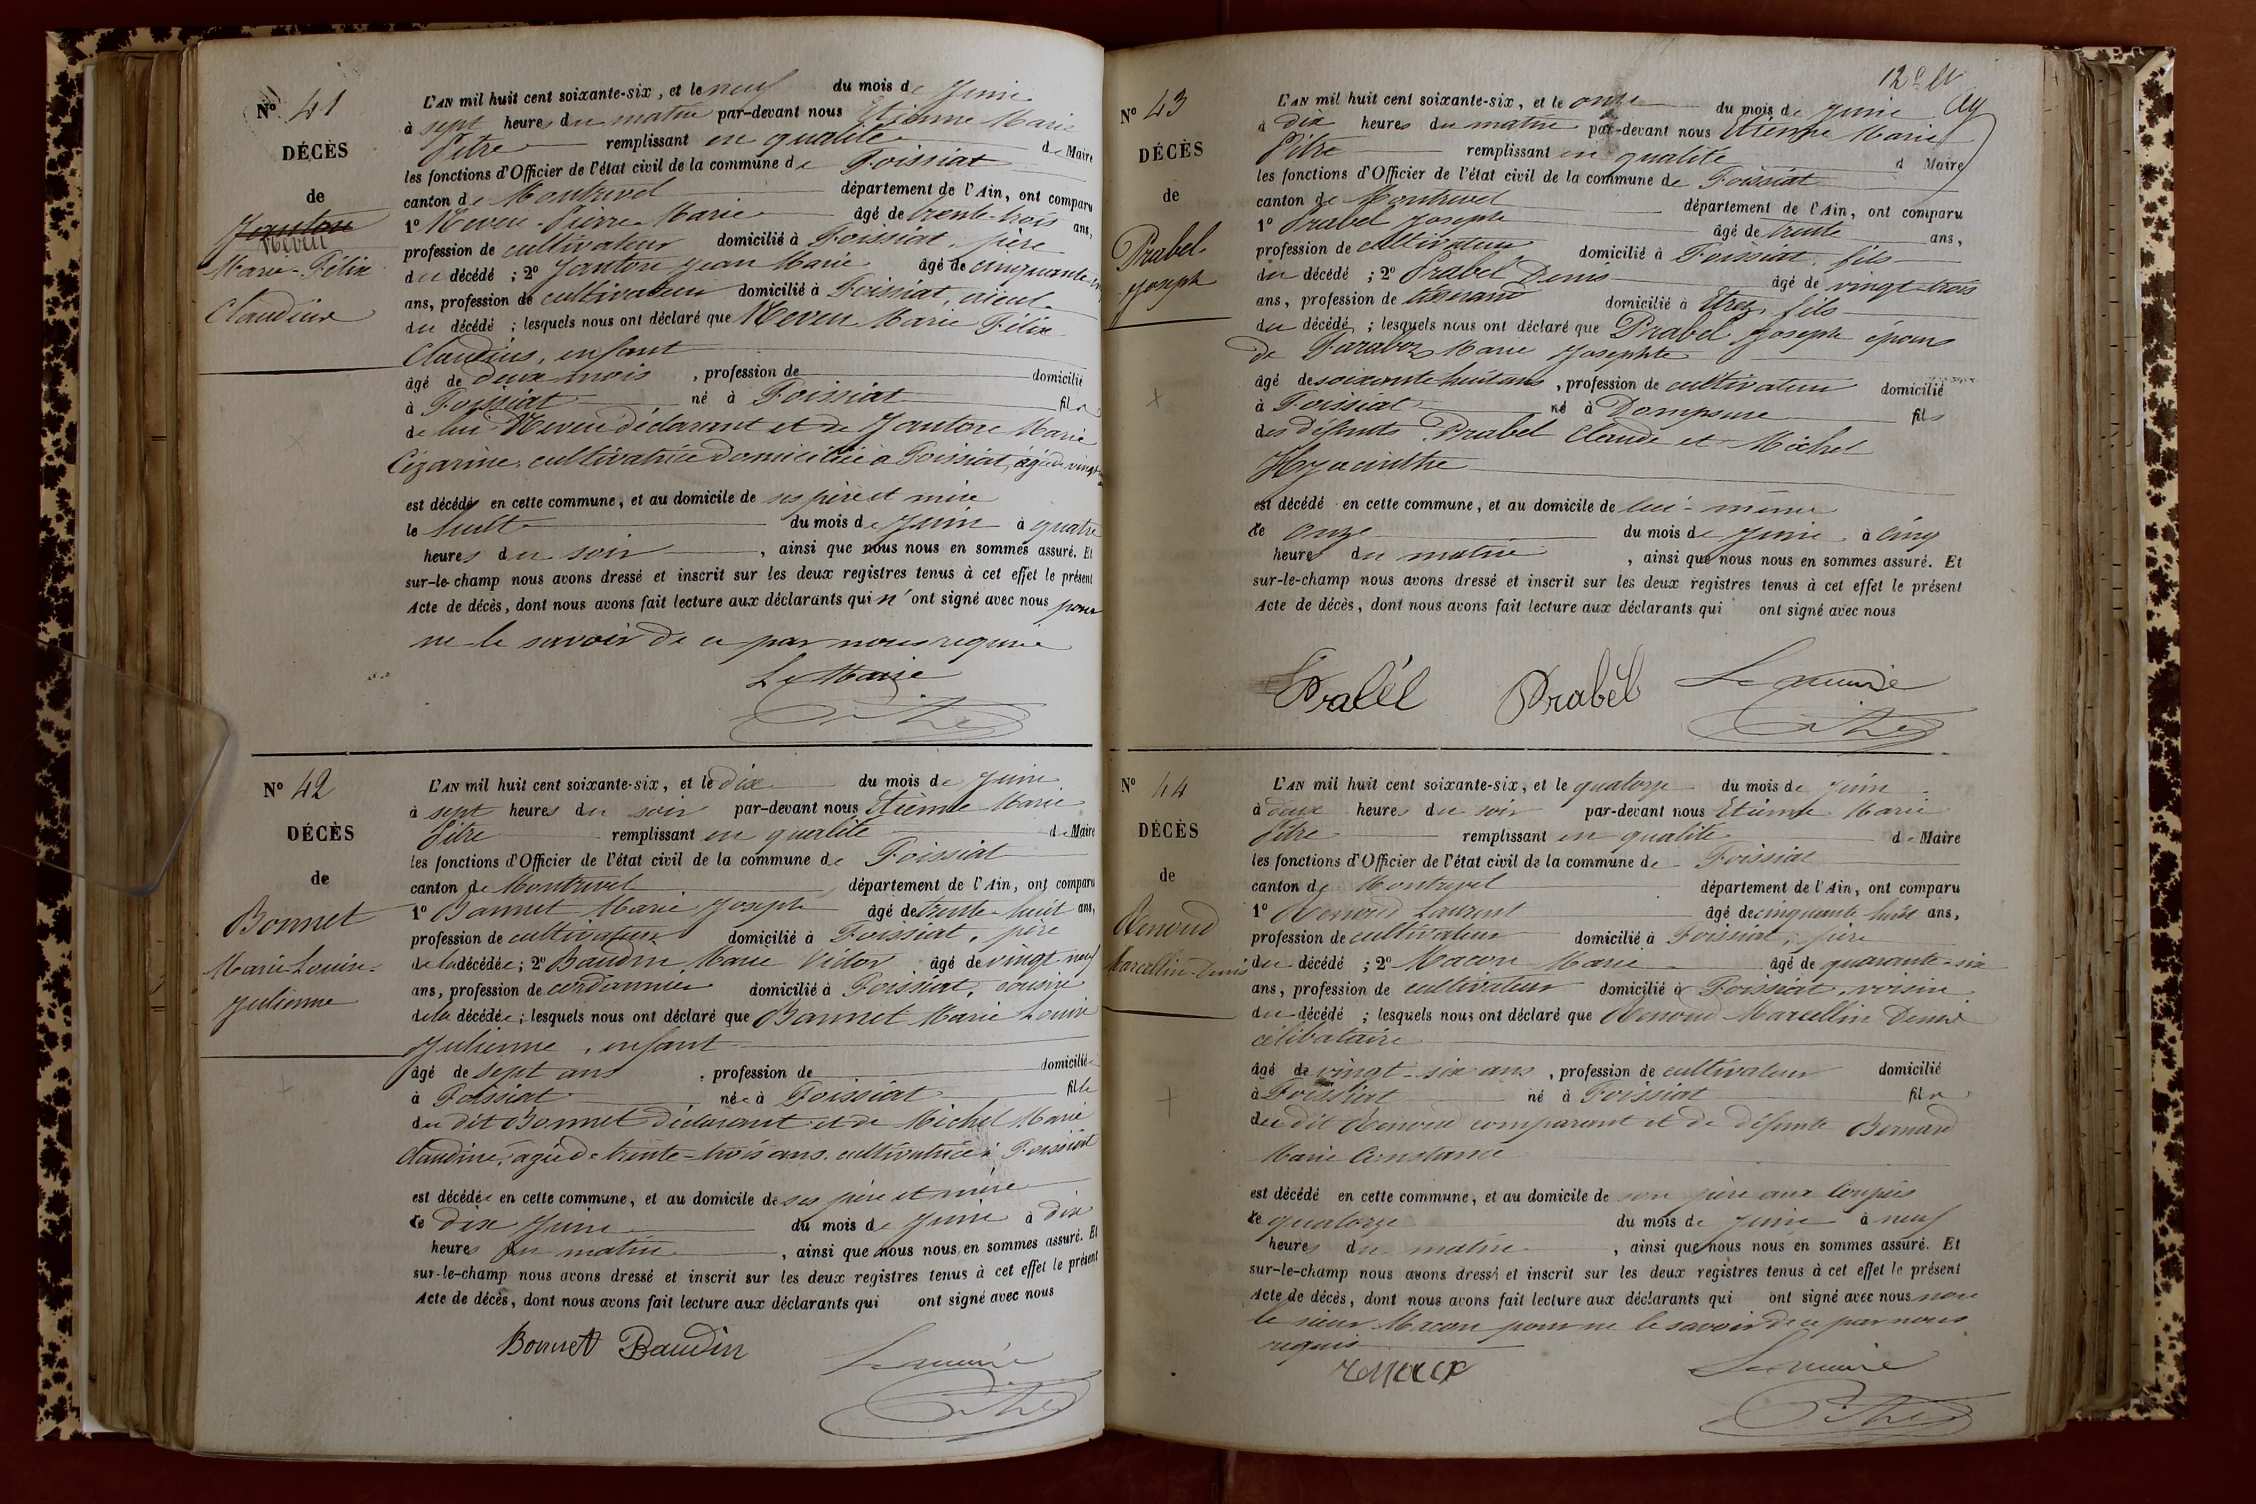 N° 41
DÉCÈS
de
Janton
Neveu
Marie-Félix
Claudius
L'AN mil huit cent soixante-six, et le neuf du mois de Juin
à sept heures du matin par-devant nous Etienne Marie
Pitre remplissant en qualité de Maire
les fonctions d'Officier de l'état civil de la commune de Foissiat
canton de Montrevel département de l'Ain, ont comparu
1° Neveu Pierre Marie âgé de trente-trois ans,
profession de cultivateur domicilié à Foissiat, père
du décédé ; 2° Janton Jean Marie âgé de cinquante
ans, profession de cultivateur domicilié à Foissiat, aïeul
du décédé ; lesquels nous ont déclaré que Neveu Marie Félix
Claudius, enfant
âgé de deux mois, profession de domicilié
à Foissiat né à Foissiat fils
de lui Neveu déclarant et de Janton Marie
Cézarine, cultivatrice domiciliée à Foissiat, âgée de vingt
est décédé en cette commune, et au domicile de ses père et mère
le huit du mois de Juin à quatre
heures du soir, ainsi que nous nous en sommes assuré. Et
sur-le-champ nous avons dressé et inscrit sur les deux registres tenus à cet effet le présent
Acte de décès, dont nous avons fait lecture aux déclarants qui n'ont signé avec nous pour
ne le savoir de ce par nous requis
Le Maire
Pitre
N° 42
DÉCÈS
de
Bonnet
Marie-Louise-
Julienne
L'AN mil huit cent soixante-six, et le dix du mois de Juin
à sept heures du soir par-devant nous Etienne Marie
Pitre remplissant en qualité de Maire
les fonctions d'Officier de l'état civil de la commune de Foissiat
canton de Montrevel département de l'Ain, ont comparu
1° Bonnet Marie Joseph âgé de trente-huit ans,
profession de cultivateur domicilié à Foissiat, père
de la décédée ; 2° Baudin Marie Victor âgé de vingt-neuf
ans, profession de cordonnier domicilié à Foissiat, cousin
de la décédée ; lesquels nous ont déclaré que Bonnet Marie Louise
Julienne, enfant
âgé de sept ans, profession de domiciliée
à Foissiat née à Foissiat fille
du dit Bonnet déclarant et de Michel Marie
Claudine, âgée de trente-trois ans, cultivatrice à Foissiat
est décédée en cette commune, et au domicile de ses père et mère
le dix Juin du mois de Juin à dix
heures du matin, ainsi que nous nous en sommes assuré. Et
sur-le-champ nous avons dressé et inscrit sur les deux registres tenus à cet effet le présent
Acte de décès, dont nous avons fait lecture aux déclarants qui ont signé avec nous
Bonnet Baudin
Le maire
Pitre
N° 43
DÉCÈS
de
Prabel
Joseph
L'AN mil huit cent soixante-six, et le onze du mois de Juin
à dix heures du matin par-devant nous Etienne Marie
Pitre remplissant en qualité d Maire
les fonctions d'Officier de l'état civil de la commune de Foissiat
canton de Montrevel département de l'Ain, ont comparu
1° Prabel Joseph âgé de trente ans,
profession de cultivateur domicilié à Foissiat, fils
du décédé ; 2° Prabel Denis âgé de vingt-trois
ans, profession de tisserand domicilié à Etrez, fils
du décédé ; lesquels nous ont déclaré que Prabel Joseph époux
de Paraboz Marie Josephte
âgé de soixante huit ans, profession de cultivateur domicilié
à Foissiat né à Dompsure fils
des défunts Prabel Claude et Michel
Hyacinthe
est décédé en cette commune, et au domicile de lui-même
le onze du mois de Juin à cinq
heures du matin, ainsi que nous nous en sommes assuré. Et
sur-le-champ nous avons dressé et inscrit sur les deux registres tenus à cet effet le présent
Acte de décès, dont nous avons fait lecture aux déclarants qui ont signé avec nous
Prabel Prabel Le maire
Pitre
N° 44
DÉCÈS
de
Renoud
Marcellin-Denis
L'AN mil huit cent soixante-six, et le quatorze du mois de Juin
à deux heures du soir par-devant nous Etienne Marie
Pitre remplissant en qualité de Maire
les fonctions d'Officier de l'état civil de la commune de Foissiat
canton de Montrevel département de l'Ain, ont comparu
1° Renoud Laurent âgé de cinquante-huit ans,
profession de cultivateur domicilié à Foissiat, père
du décédé ; 2° Macon Marie âgé de quarante-six
ans, profession de cultivateur domicilié à Foissiat, voisin
du décédé ; lesquels nous ont déclaré que Renoud Marcellin Denis
célibataire
âgé de vingt-six ans, profession de cultivateur domicilié
à Foissiat né à Foissiat fils
du dit Renoud comparant et de défunte Bernard
Marie Constance
est décédé en cette commune, et au domicile de son père aux
le quatorze du mois de Juin à neuf
heures du matin, ainsi que nous nous en sommes assuré. Et
sur-le-champ nous avons dressé et inscrit sur les deux registres tenus à cet effet le présent
Acte de décès, dont nous avons fait lecture aux déclarants qui ont signé avec nous non
le sieur Macon pour ne le savoir de ce par nous
requis
Le maire
Pitre